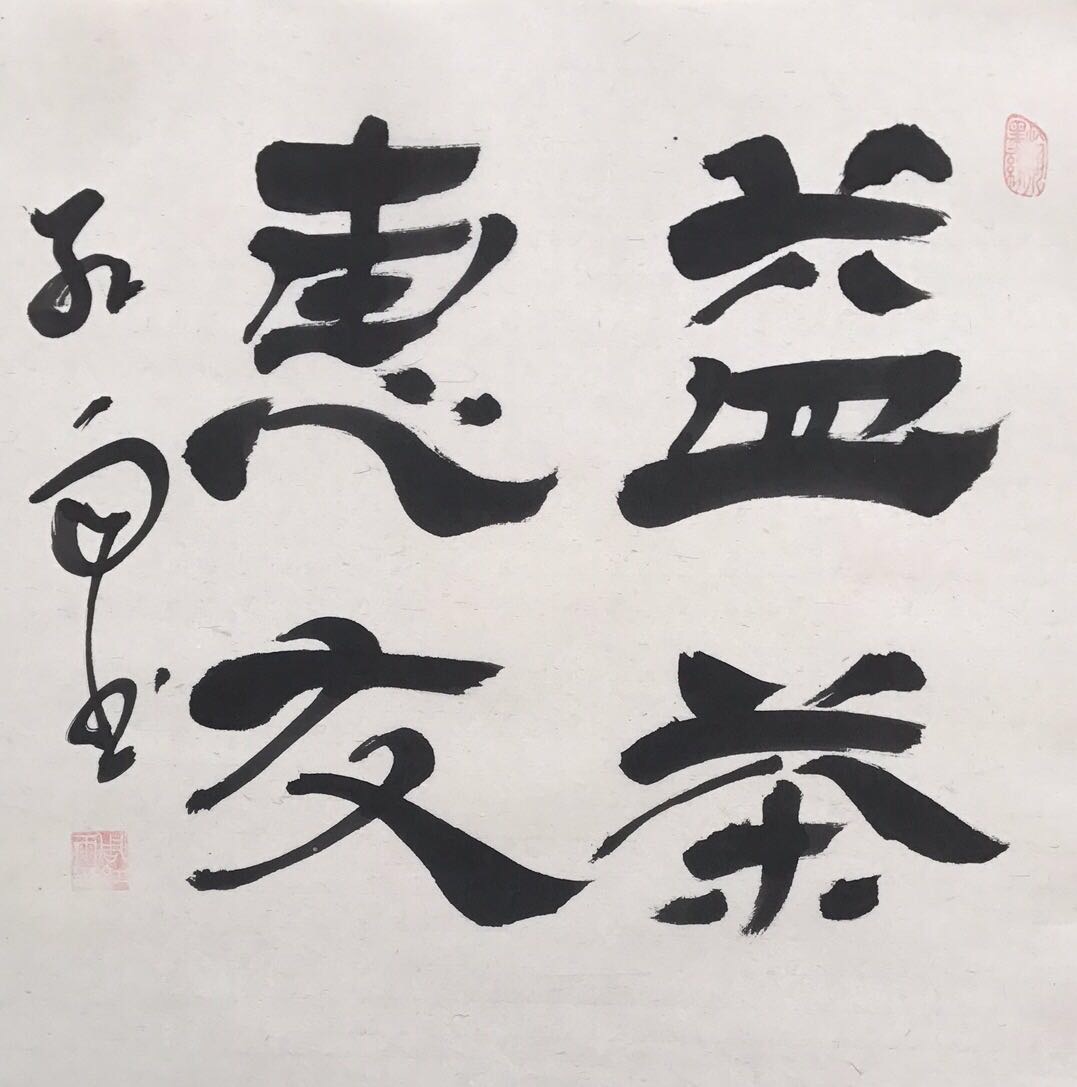 益茶
惠友